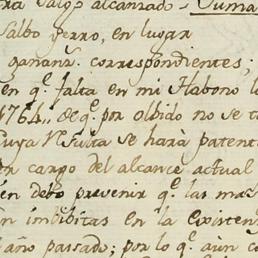 ra Cargo alcanzado - Suma
Salbo yerro, en lugar
gananz.s correspondientes;
en q.e falta en mi Habono lo
1764,, de q.e por olbido no se to
cuya Resulta se harà patent
n cargo del alcance actual
en debo prevenir q.e las mas
n imbibitas en la existen
año passado; por lo q.e aùn c